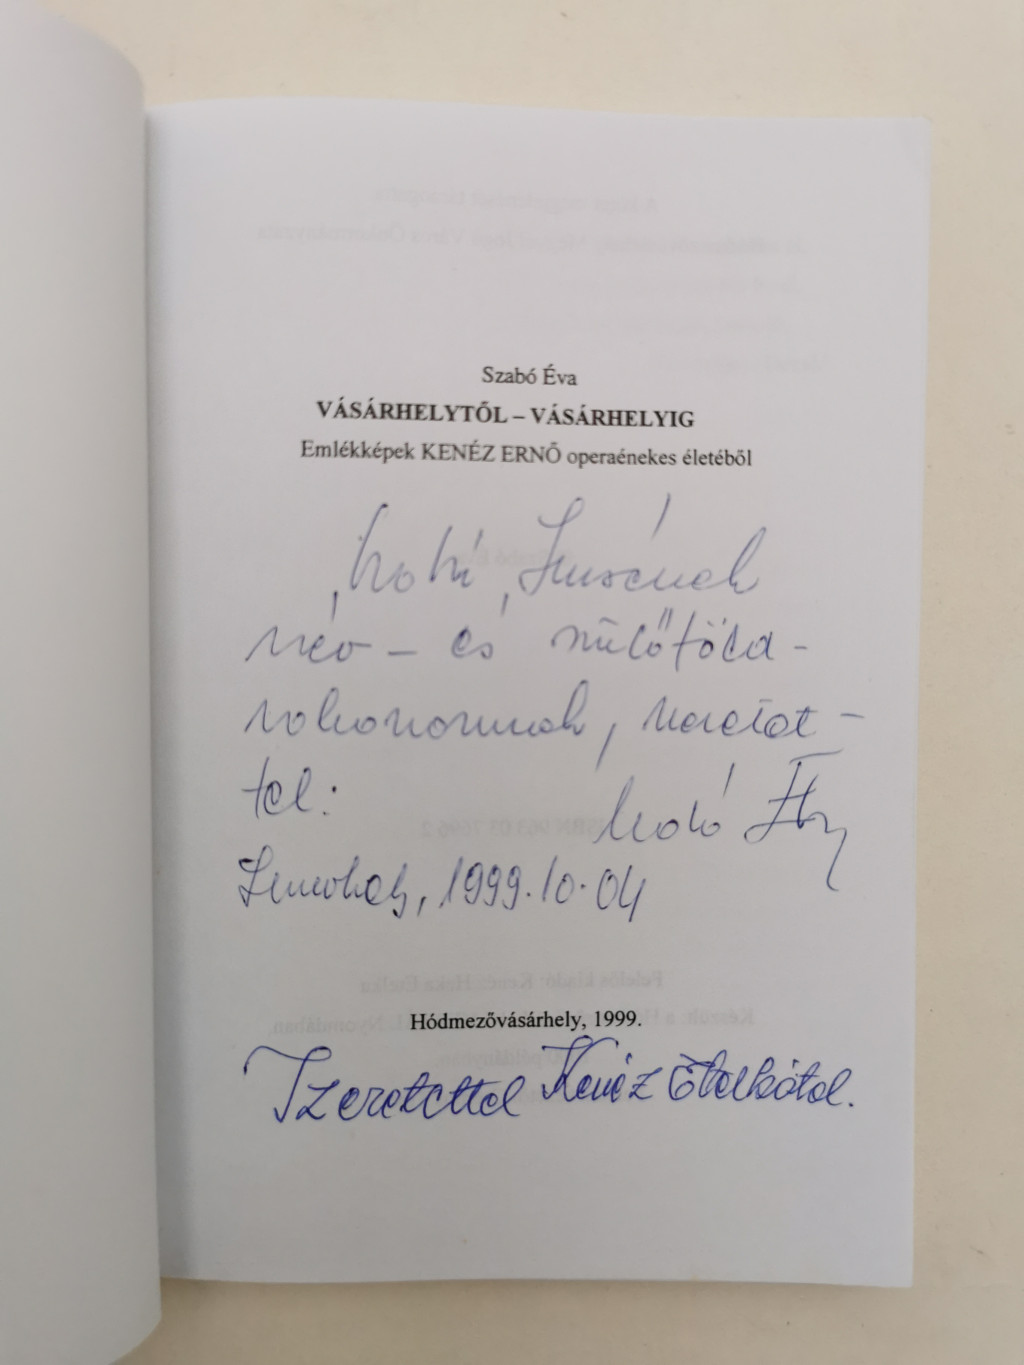 Szabó Éva
VÁSÁRHELYTŐL – VÁSÁRHELYIG
Emlékképek KENÉZ ERNŐ operaénekes életéből
név – és szülőföld-
rokonomnak, szeretet-
tel:
Szabó Éva
, 1999.10.04
Hódmezővásárhely, 1999.
Szeretettel Kenéz Etelkától.